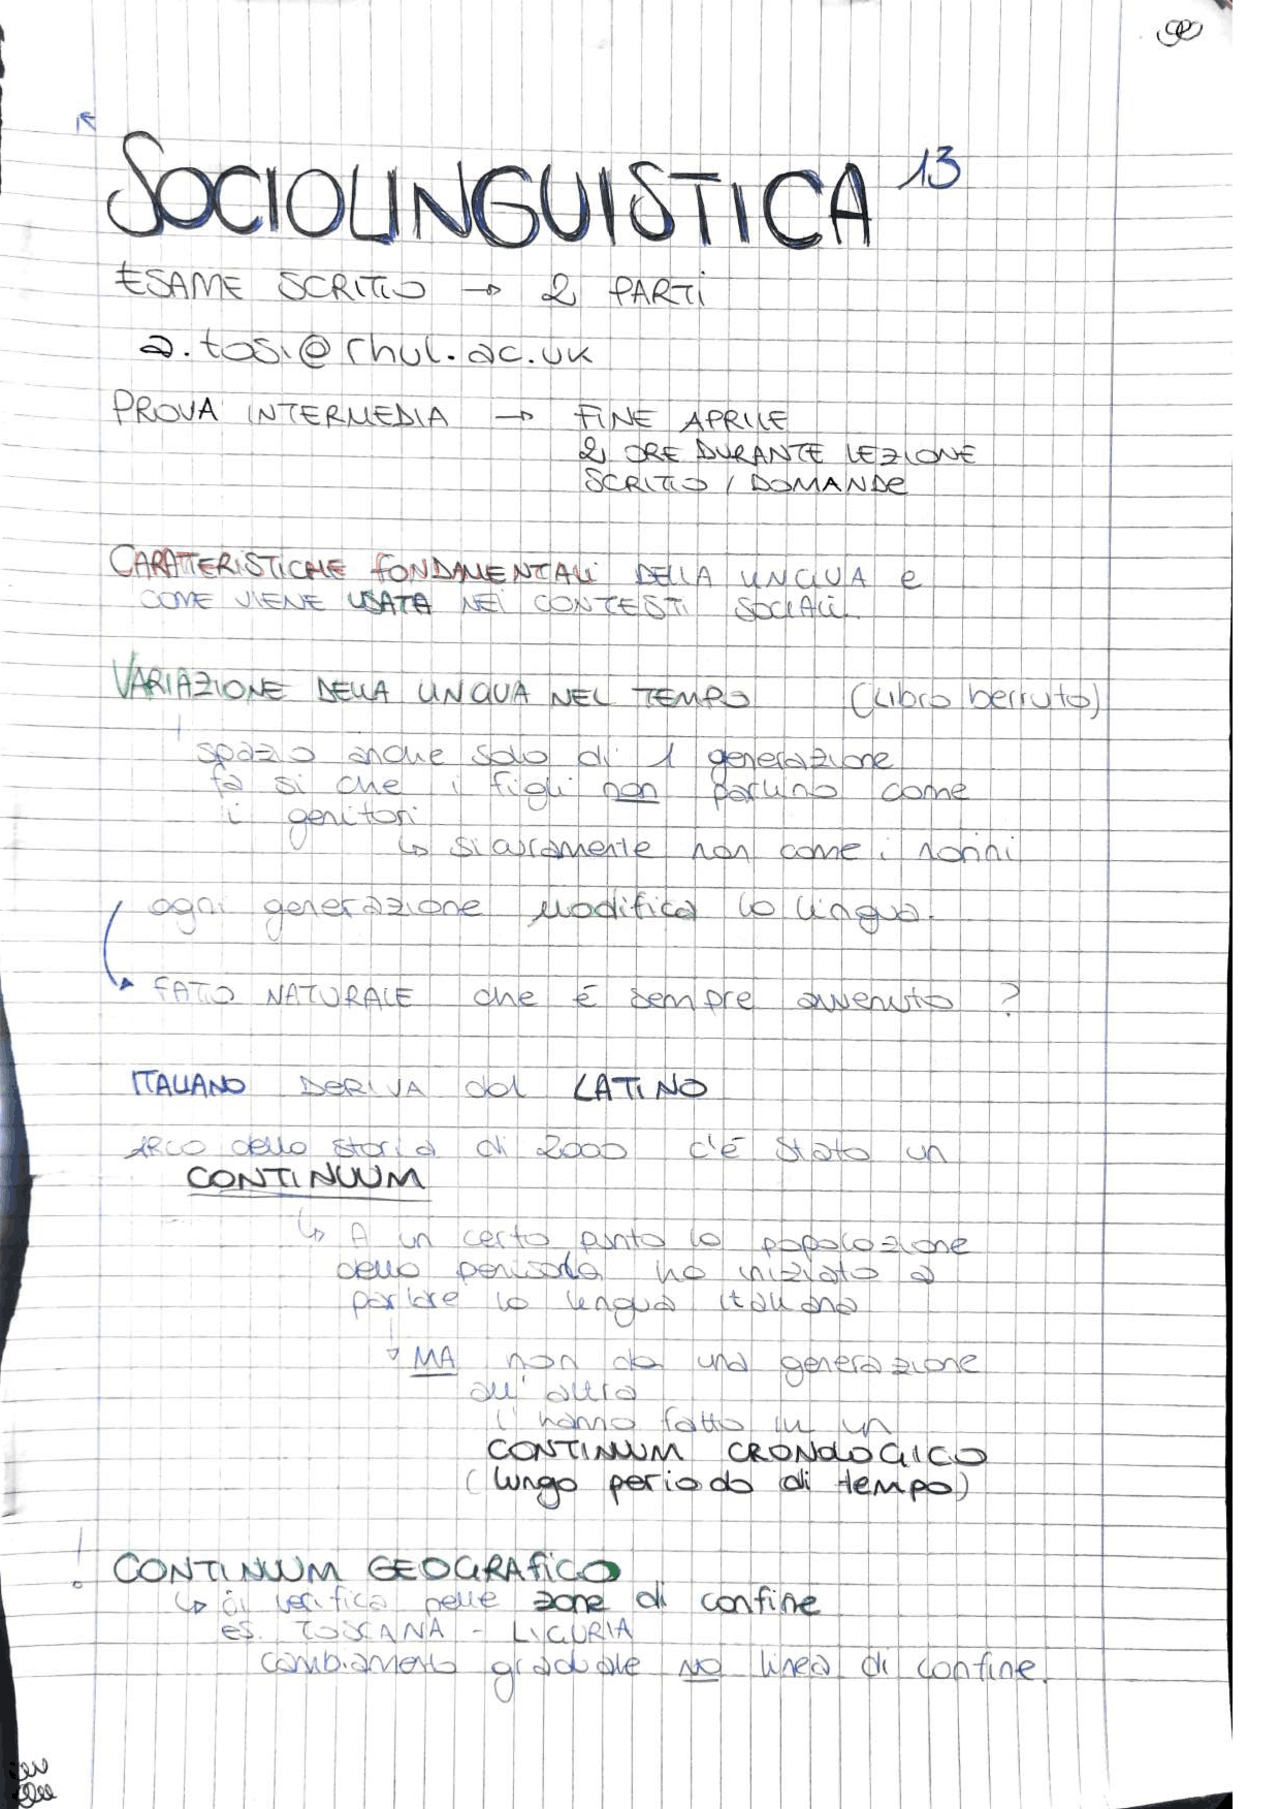 SOCIOLINGUISTICA 13
ESAME SCRITTO → 2 PARTI
a.tosi@rhul.ac.uk
PROVA INTERMEDIA → FINE APRILE
2 ORE DURANTE LEZIONE
SCRITTO / DOMANDE
CARATTERISTICHE FONDAMENTALI DELLA LINGUA e
COME VIENE USATA NEI CONTESTI SOCIALI.
VARIAZIONE DELLA LINGUA NEL TEMPO (Libro berruto)
spazio anche solo di 1 generazione
fa si che i figli non parlino come
i genitori
↳ sicuramente non come i nonni
ogni generazione modifica la lingua.
FATTO NATURALE che è sempre avvenuto ?
ITALIANO DERIVA dal LATINO
arco della storia di 2000 c'è stato un
CONTINUUM
↳ A un certo punto la popolazione
della penisola ha iniziato a
parlare la lingua italiana
MA non da una generazione
all'altra
l'hanno fatto in un
CONTINUUM CRONOLOGICO
(lungo periodo di tempo)
! CONTINUUM GEOGRAFICO
↳ si verifica nelle zone di confine
es. TOSCANA - LIGURIA
cambiamento graduale NO linea di confine.